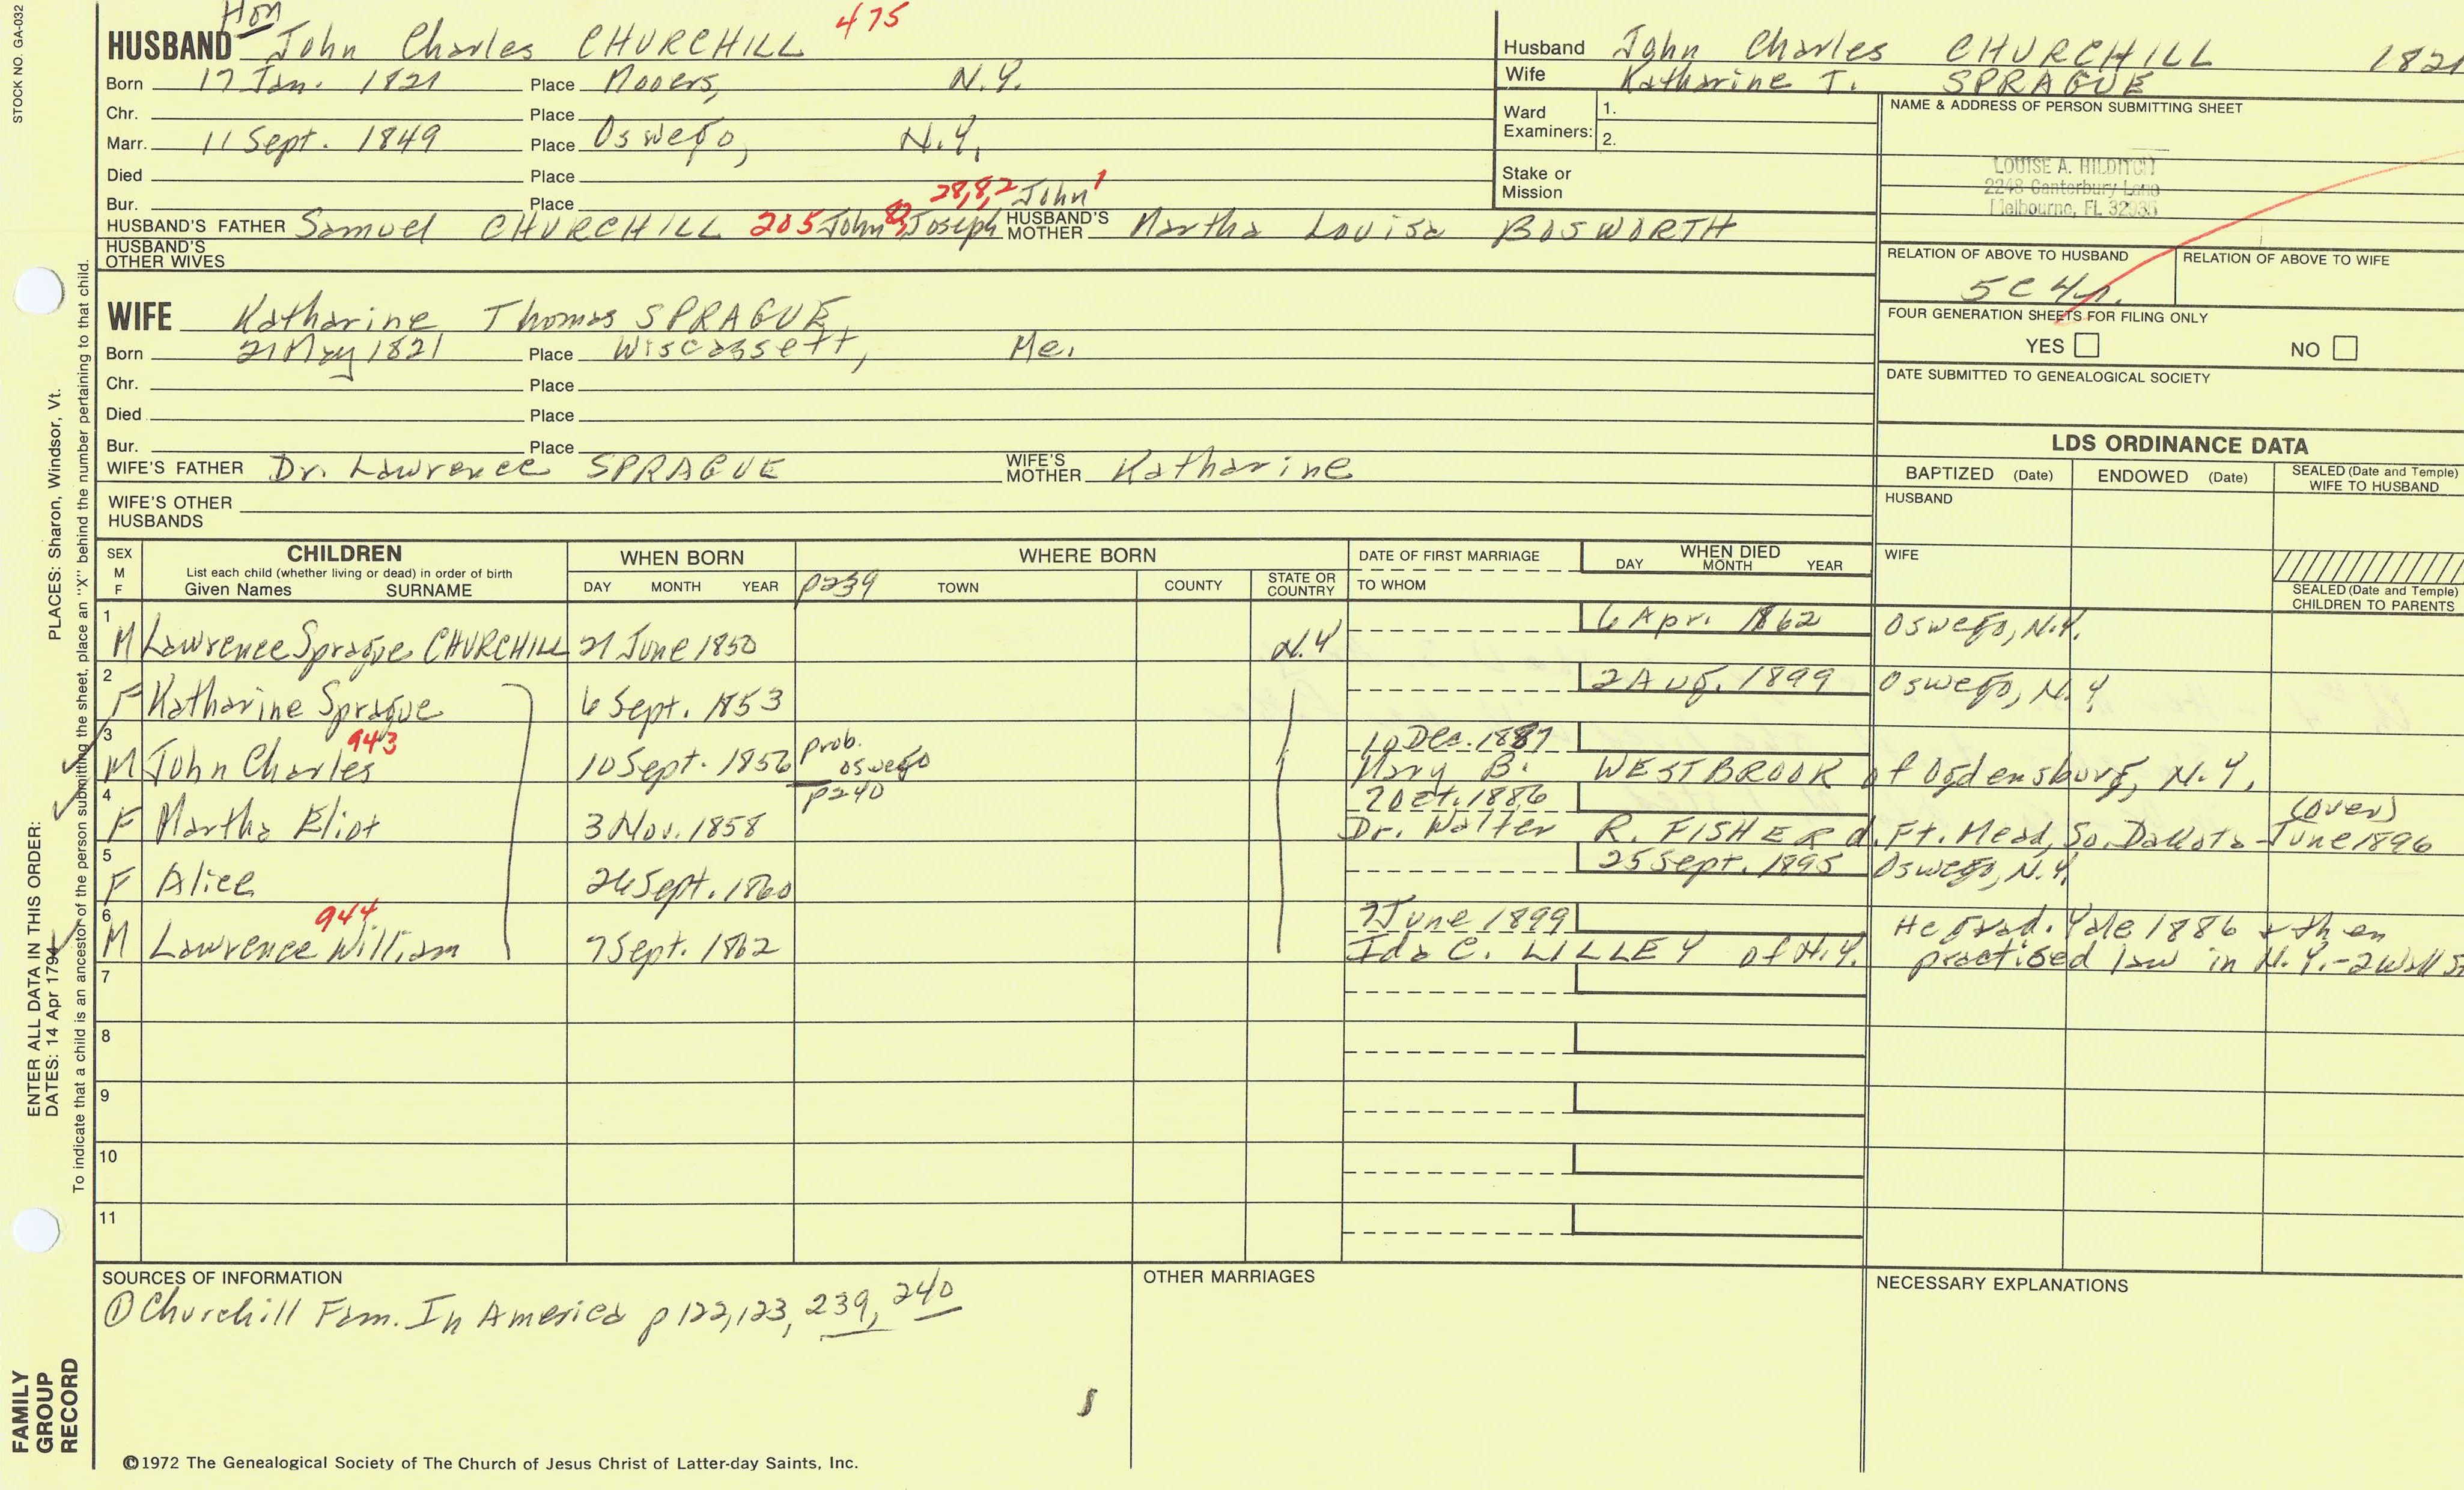 STOCK NO. GA-032
Hon
HUSBAND John Charles CHURCHILL 475
Born 17 Jan. 1821 Place Mooers, N.Y.
Chr. Place
Marr. 11 Sept. 1849 Place Oswego, N.Y.
Died Place
Bur. Place
28,8,2 John 1
HUSBAND'S FATHER Samuel CHURCHILL 205 John Joseph HUSBAND'S MOTHER Martha Louisa BOSWORTH
HUSBAND'S OTHER WIVES
WIFE Katharine Thomas SPRAGUE
Born 21 May 1821 Place Wiscassett, Me.
Chr. Place
Died Place
Bur. Place
WIFE'S FATHER Dr. Lawrence SPRAGUE WIFE'S MOTHER Katharine
WIFE'S OTHER HUSBANDS
Husband John Charles CHURCHILL 1821
Wife Katharine T. SPRAGUE
Ward Examiners: 1.
2.
Stake or Mission
NAME & ADDRESS OF PERSON SUBMITTING SHEET
LOUISE A. HILDITCH
2248 Canterbury Lane
Melbourne, FL 32935
RELATION OF ABOVE TO HUSBAND RELATION OF ABOVE TO WIFE
5C4r.
FOUR GENERATION SHEETS FOR FILING ONLY
YES NO
DATE SUBMITTED TO GENEALOGICAL SOCIETY
LDS ORDINANCE DATA
BAPTIZED (Date) ENDOWED (Date) SEALED (Date and Temple) WIFE TO HUSBAND
HUSBAND
WIFE
SEALED (Date and Temple) CHILDREN TO PARENTS
SEX M F
CHILDREN
List each child (whether living or dead) in order of birth
Given Names SURNAME
WHEN BORN
DAY MONTH YEAR
WHERE BORN
p239 TOWN COUNTY STATE OR COUNTRY
DATE OF FIRST MARRIAGE
TO WHOM
WHEN DIED
DAY MONTH YEAR
1 M Lawrence Sprague CHURCHILL 21 June 1850 N.Y 6 Apr. 1862 Oswego, N.Y.
2 F Katharine Sprague 6 Sept. 1853 2 Aug. 1899 Oswego, N.Y
3 M John Charles 943 10 Sept. 1856 prob. Oswego 10 Dec. 1887
Mary B. WESTBROOK of Ogdensburg, N.Y.
4 F Martha Eliot 3 Nov. 1858 p240 2 Oct. 1886 (over)
Dr. Walter R. FISHER d. Ft. Mead, So. Dakota - June 1896
5 F Alice 26 Sept. 1860 25 Sept. 1895 Oswego, N.Y.
6 M Lawrence William 944 7 Sept. 1862 7 June 1899 He grad. Yale 1886 & then
Ida C. LILLEY of N.Y. practised law in N.Y. - 2 Wall St
7
8
9
10
11
SOURCES OF INFORMATION
① Churchill Fam. In America p 122, 123, 239, 240
OTHER MARRIAGES
NECESSARY EXPLANATIONS
©1972 The Genealogical Society of The Church of Jesus Christ of Latter-day Saints, Inc.
FAMILY GROUP RECORD
ENTER ALL DATA IN THIS ORDER:
DATES: 14 Apr 1794
PLACES: Sharon, Windsor, Vt.
To indicate that a child is an ancestor of the person submitting the sheet, place an "X" behind the number pertaining to that child.